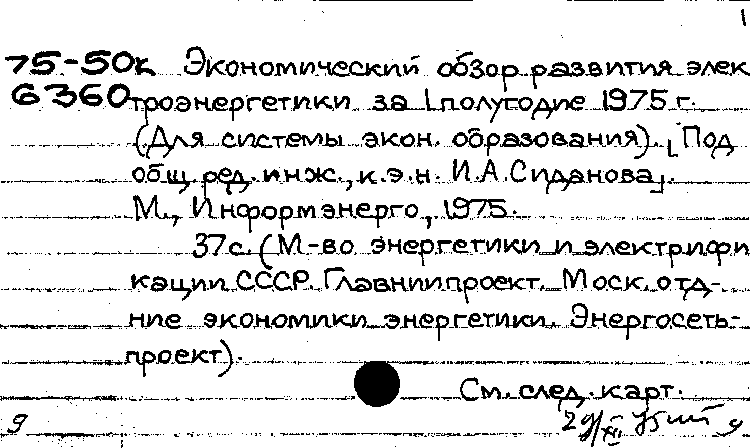 1
75-50к Экономический обзор развития элек
6360 троэнергетики за I полугодие 1975 г.
(Для системы экон. образования). [Под
общ. ред. инж., к.э.н. И.А. Сиданова].
М., Информэнерго, 1975.
37 с. (М-во энергетики и электрифи
кации СССР. Главниипроект. Моск. отд-
ние экономики энергетики. Энергосеть-
проект).
См. след. карт.
9 29/XII 75 9